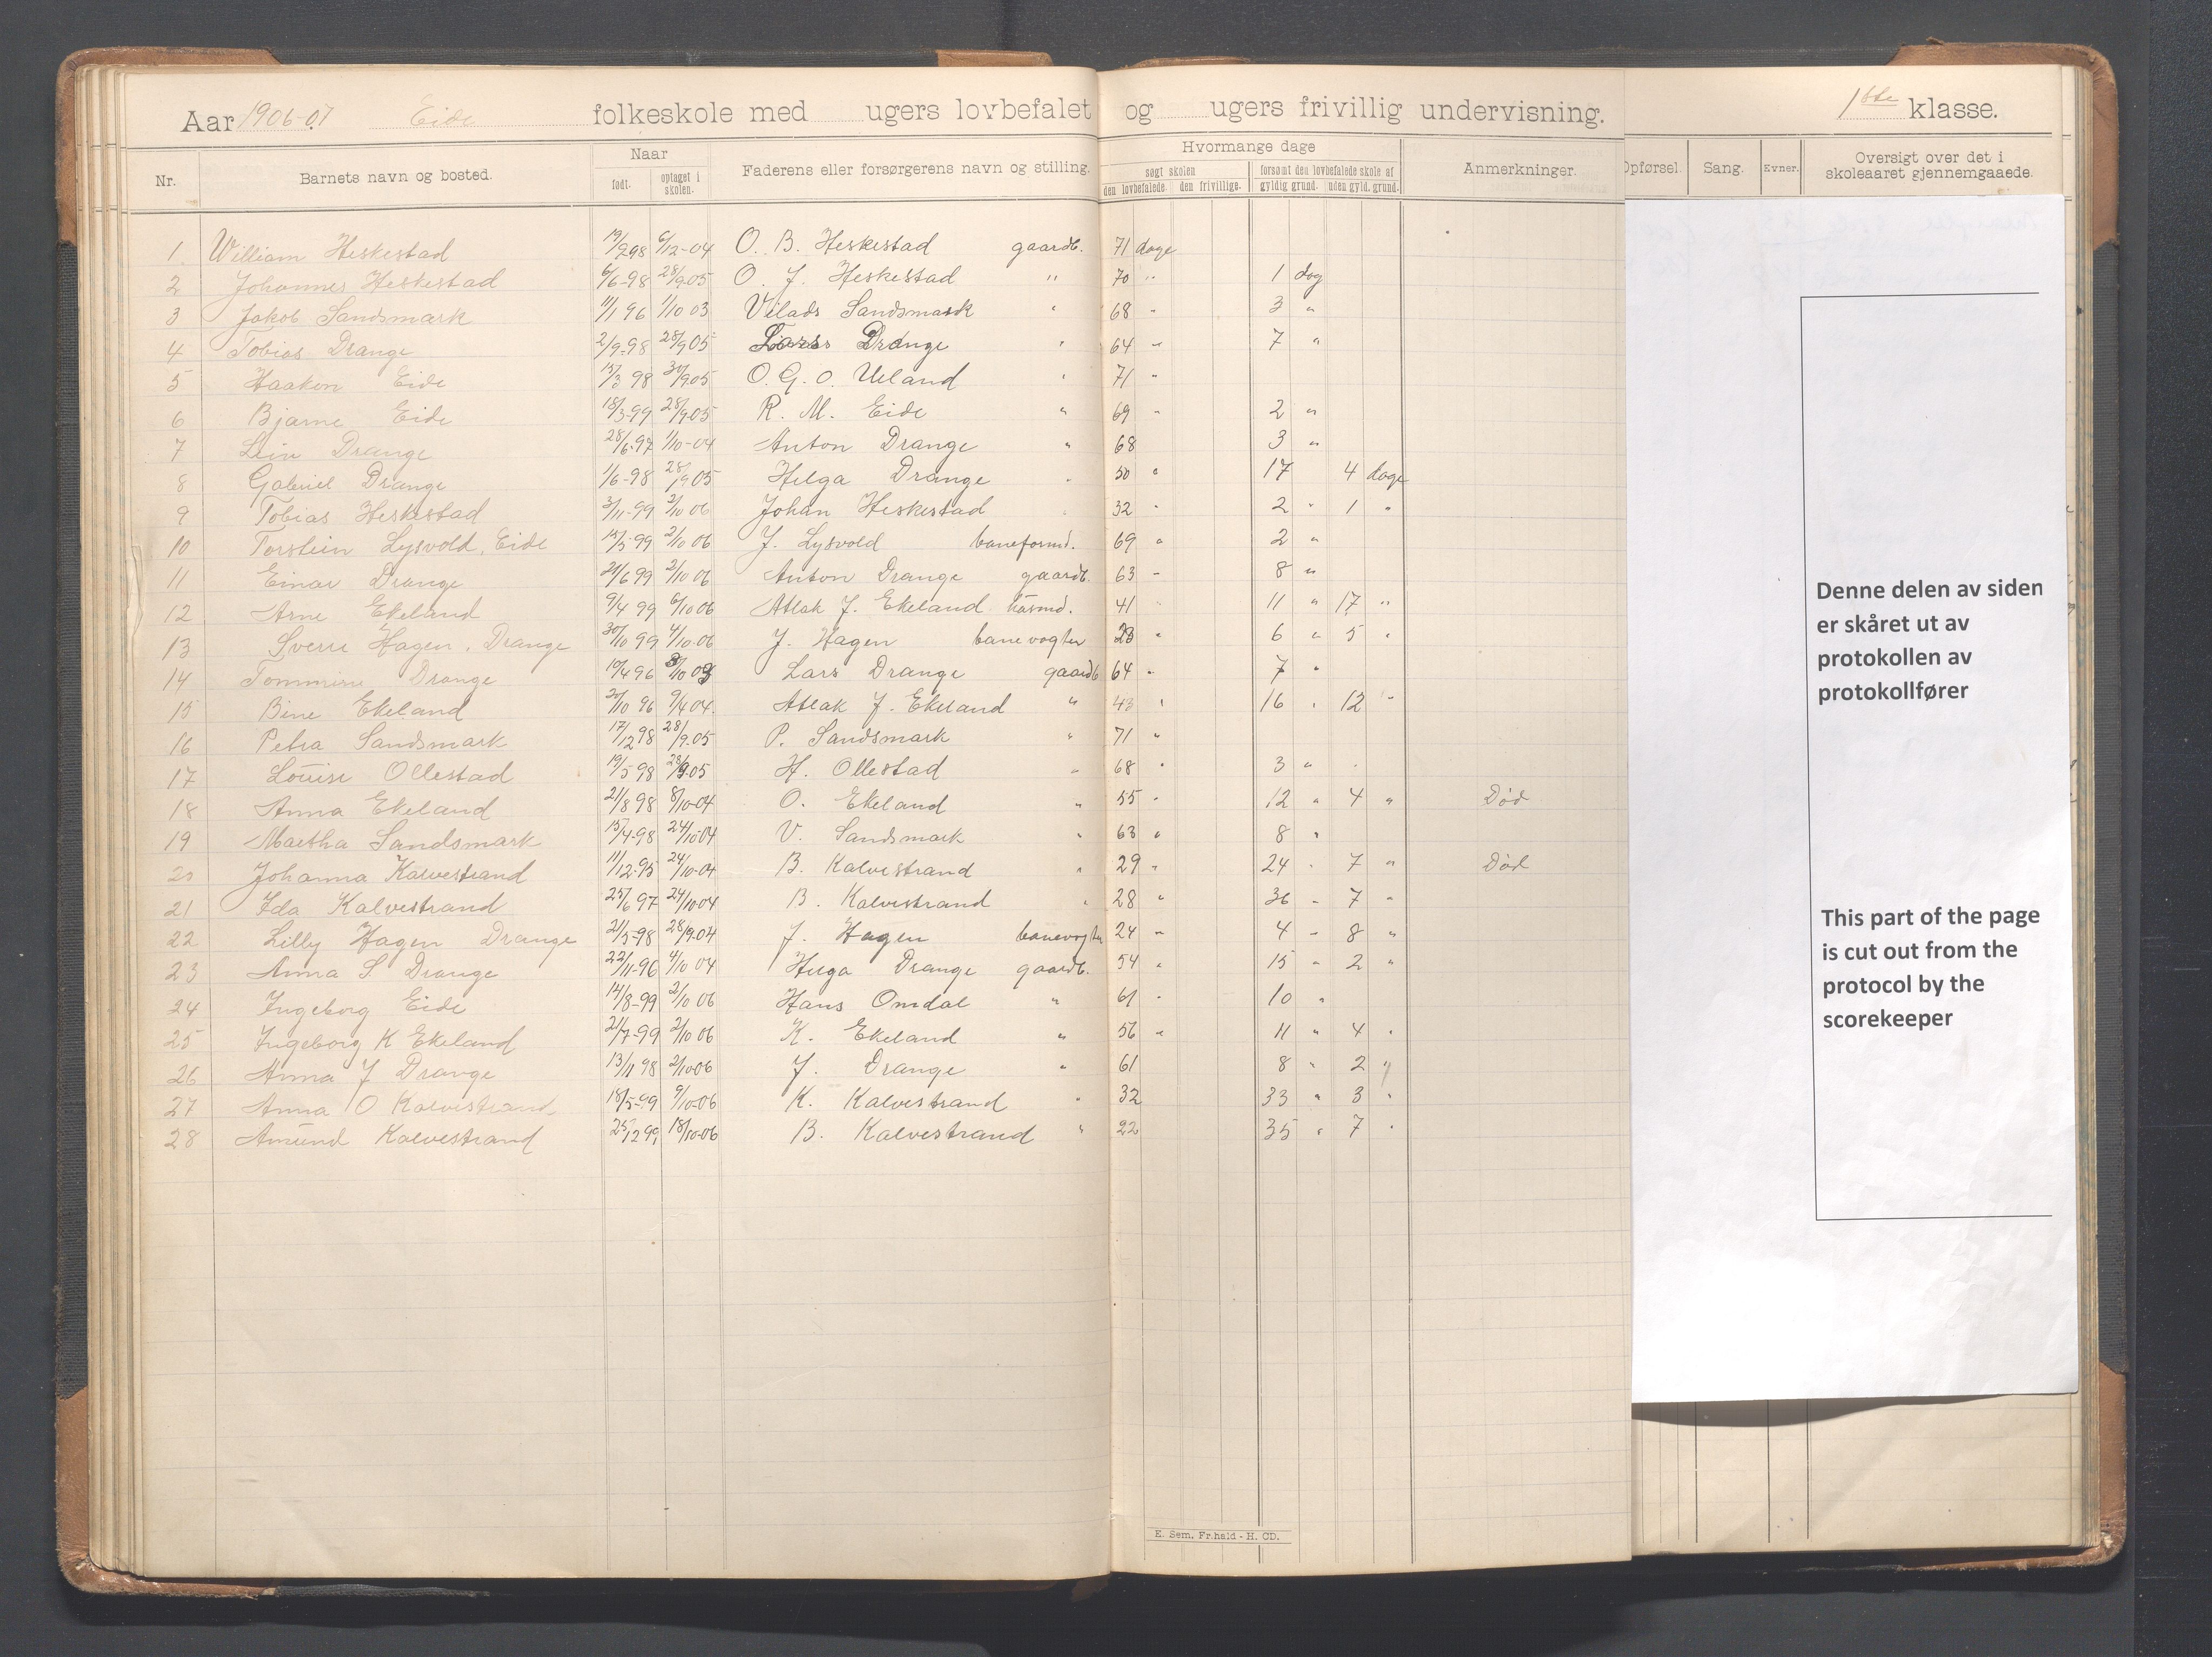 Aar 1906-07 Eide folkeskole med ugers lovbefalet og ugers frivillig undervisning. 1ste klasse.
Nr. Barnets navn og bosted. Naar født. optaget i skolen. Faderens eller forsørgerens navn og stilling. Hvormange dage søgt skolen den lovbefalede. den frivillige. forsømt den lovbefalede skole af gyldig grund. uden gyld. grund. Anmerkninger. Opførsel. Sang. Evner. Oversigt over det i skoleaaret gjennemgaaede.
1. William Heskestad 19/2 98 6/12-04 O. B. Heskestad gaardb. 71 dage
2 Johannes Heskestad 6/6-98 28/9 05 O. J. Heskestad " 70 " 1 dag
3 Jakob Sandsmark 11/1 96 1/10 03 Vilads Sandsmark " 68 " 3 "
4 Tobias Drange 2/9-98 28/9 05 Lars Drange " 64 " 7 "
5 Haakon Eide 15/3 98 30/9 05 O. G. O. Ueland " 71 "
6 Bjarne Eide 18/3-99 28/9 05 R. M. Eide " 69 " 2 "
7 Lein Drange 28/6-97 1/10-04 Anton Drange " 68 3 "
8 Gabriel Drange 1/6-98 28/9 05 Helga Drange " 50 " 17 4 dage
9 Tobias Heskestad 3/11-99 2/10 06 Johan Heskestad " 32 " 2 " 1 "
10 Torstein Lysvold, Eide 15/5 99 2/10 06 J. Lysvold baneformd. 69 " 2 "
11 Einar Drange 21/6 99 2/10 06 Anton Drange gaardb. 63 " 8 "
12 Arne Ekeland 9/4 99 6/10 06 Atlak J. Ekeland husmd. 41 " 11 " 17 "
13 Sverre Hagen, Drange 30/10 99 4/10-06 J. Hagen banevogter 28 " 6 " 5 "
14 Tommine Drange 19/4 96 3/10 03 Lars Drange gaardb 64 " 7 "
15 Bine Ekeland 20/10 96 9/4 04 Atlak J. Ekeland " 43 " 16 " 12 "
16 Petra Sandsmark 17/12 98 28/9.05 P. Sandsmark " 71 "
17 Louise Ollestad 19/5 98 28/9.05 H. Ollestad " 68 " 3 "
18 Anna Ekeland 21/8 98 8/10-04 O. Ekeland " 55 " 12 " 4 " Død
19 Martha Sandsmark 15/4-98 24/10-04 V. Sandsmark " 63 " 8 "
20 Johanna Kalvestrand 11/12-95 24/10-04 B. Kalvestrand " 29 " 24 " 7 " Død
21 Ida Kalvestrand 25/6 97 24/10-04 B. Kalvestrand " 28 " 36 " 7 "
22 Lilly Hagen Drange 21/5-98 28/9.04 J. Hagen banevogter 24 " 4 " 8 "
23 Anna S Drange 22/11-96 4/10 04 Helga Drange gaardb. 54 " 15 " 2 "
24 Ingeborg Eide 14/8-99 2/10 06 Hans Omdal " 61 " 10 "
25 Ingeborg K Ekeland 21/7-99 2/10 06 K. Ekeland " 56 " 11 " 4 "
26 Anna J Drange 13/11 98 2/10-06 J. Drange " 61 8 " 2 "
27 Anna O Kalvestrand 18/5-99 9/10-06 K. Kalvestrand " 32 33 " 3 "
28 Amund Kalvestrand 25/12 99 18/10-06 B. Kalvestrand " 22 35 " 7 "
E. Sem, Fr.hald - H. CD.
Denne delen av siden
er skåret ut av
protokollen av
protokollfører
This part of the page
is cut out from the
protocol by the
scorekeeper